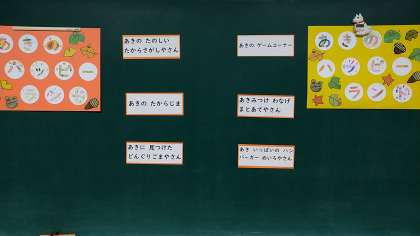 あきの たのしい
たからさがしやさん
あきの たからじま
あきに 見つけた
どんぐりごまやさん
あきの ゲームコーナー
あきみつけ わなげ
まとあてやさん
あき いっぱいの ハン
バーガー めいろやさん